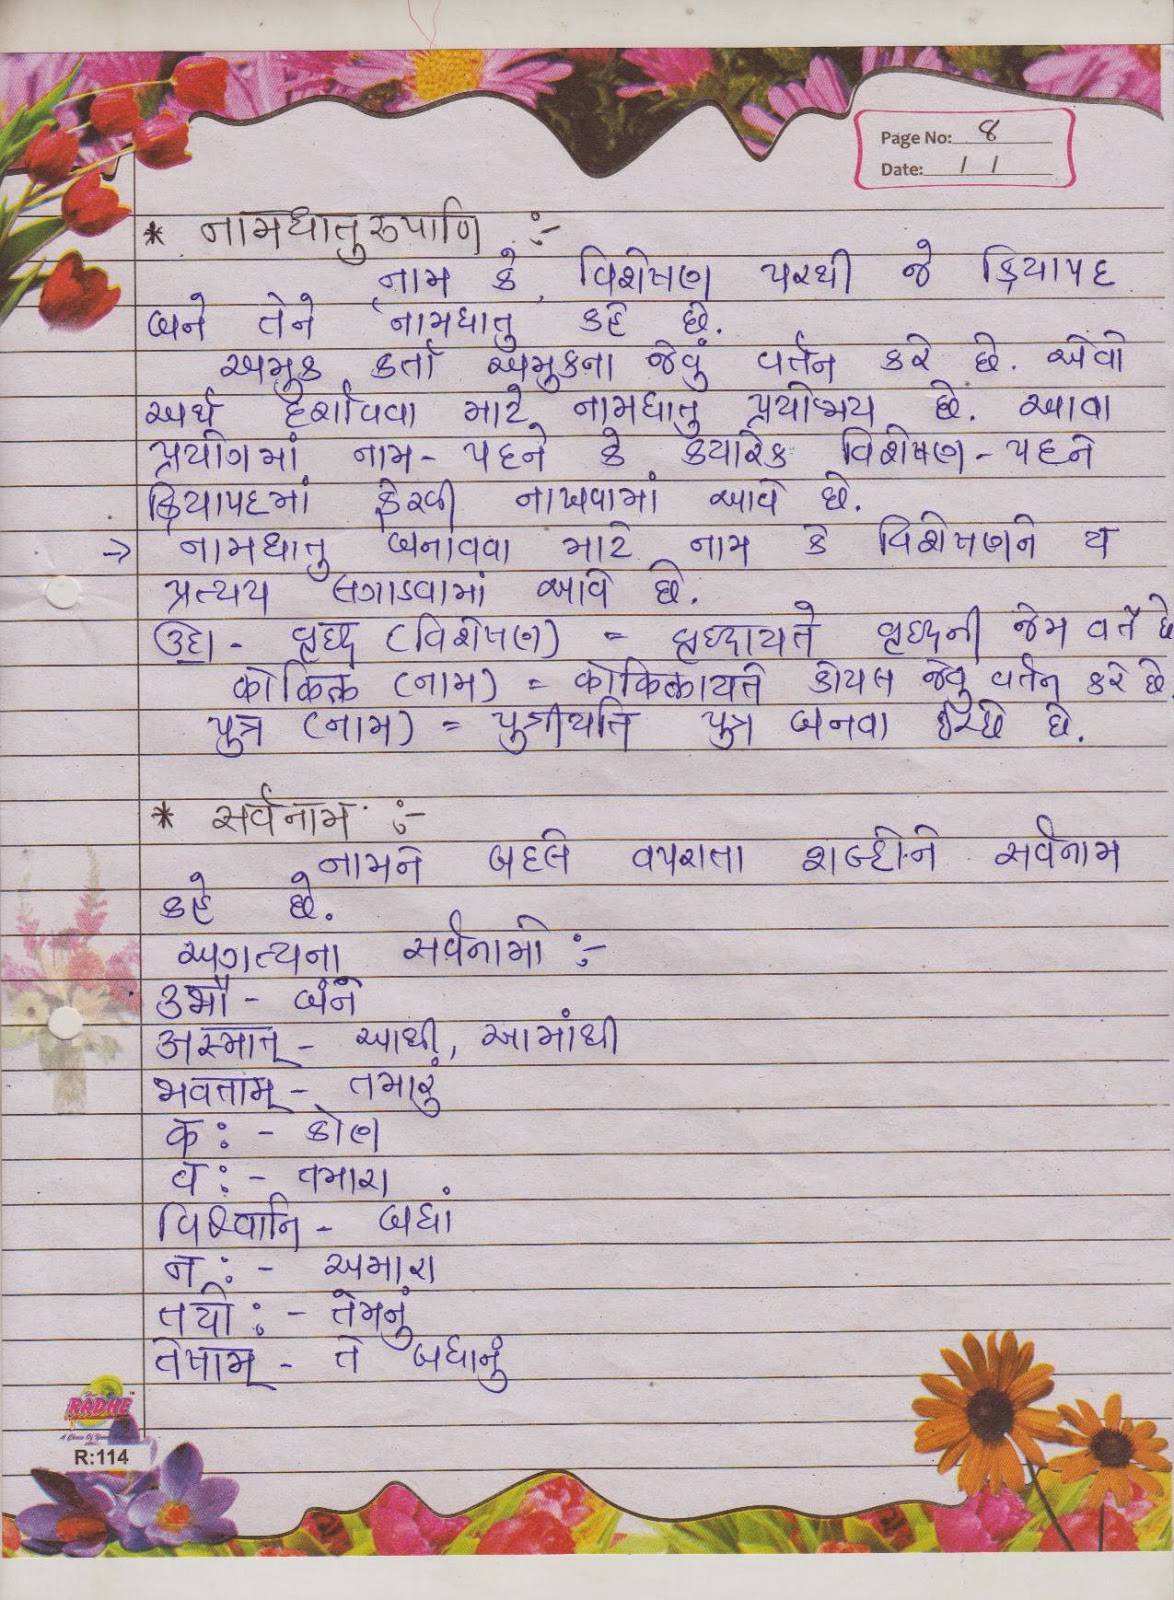 Page No: 8
Date: / /
* નામધાતુ રુપાણિ :-
નામ કે, વિશેષણ પરથી જે ક્રિયાપદ
બને તેને નામધાતુ કહે છે.
અમુક કર્તા અમુકના જેવું વર્તન કરે છે. એવો
અર્થ દર્શાવવા માટે નામધાતુ પ્રયોજાય છે. આવા
પ્રયોગમાં નામ - પદને કે ક્યારેક વિશેષણ - પદને
ક્રિયાપદમાં ફેરવી નાખવામાં આવે છે.
→ નામધાતુ બનાવવા માટે નામ કે વિશેષણને ય
પ્રત્યય લગાડવામાં આવે છે.
ઉદા - વૃદ્ધ (વિશેષણ) = વૃદ્ધાયતે વૃદ્ધની જેમ વર્તે છે
कोकिल (નામ) = कोकिलायते કોયલ જેવું વર્તન કરે છે.
पुत्र (નામ) = पुत्रीयति પુત્ર બનવા ઈચ્છે છે.
* સર્વનામ :-
નામને બદલે વપરાતા શબ્દોને સર્વનામ
કહે છે.
અગત્યના સર્વનામો :-
उभौ - બંને
अस्मात् - આથી, આમાંથી
भवताम् - તમારું
क: - કોણ
व: - તમારા
विश्वानि - બધાં
न: - અમારા
तयो: - તેમનું
तेषाम् - તે બધાનું
RADHE
R:114